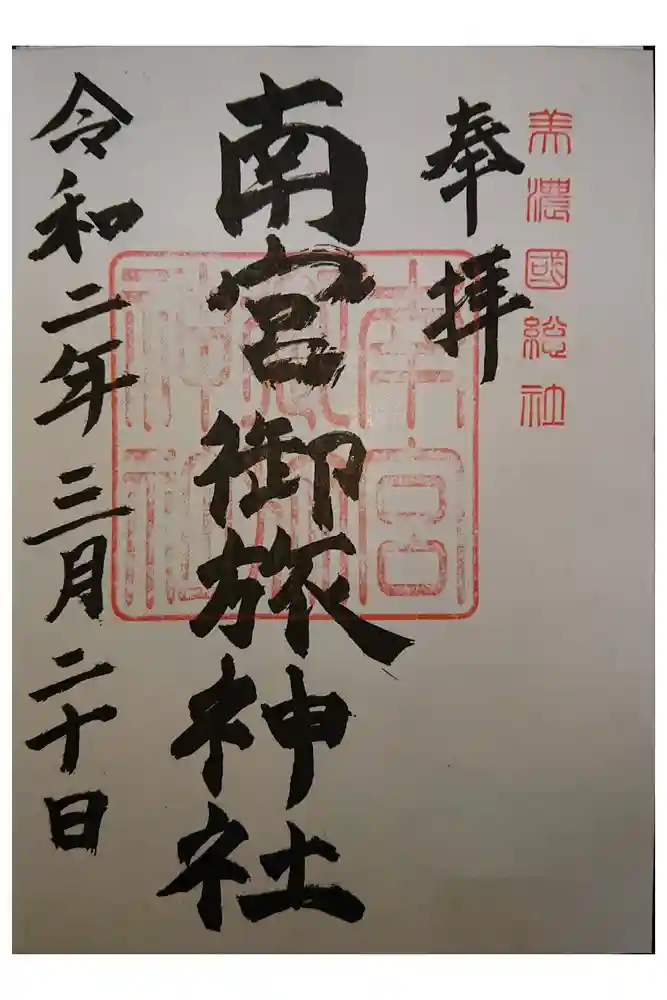 美濃國総社
奉拝
南宮御旅神社
令和二年三月二十日
南宮御旅神社